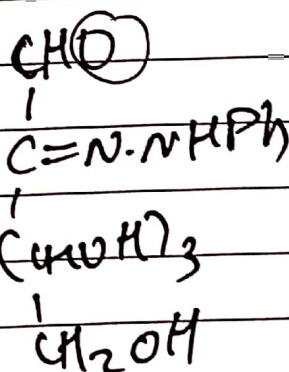 CHO
|
C=N.NHPh
|
(CHOH)3
|
CH2OH